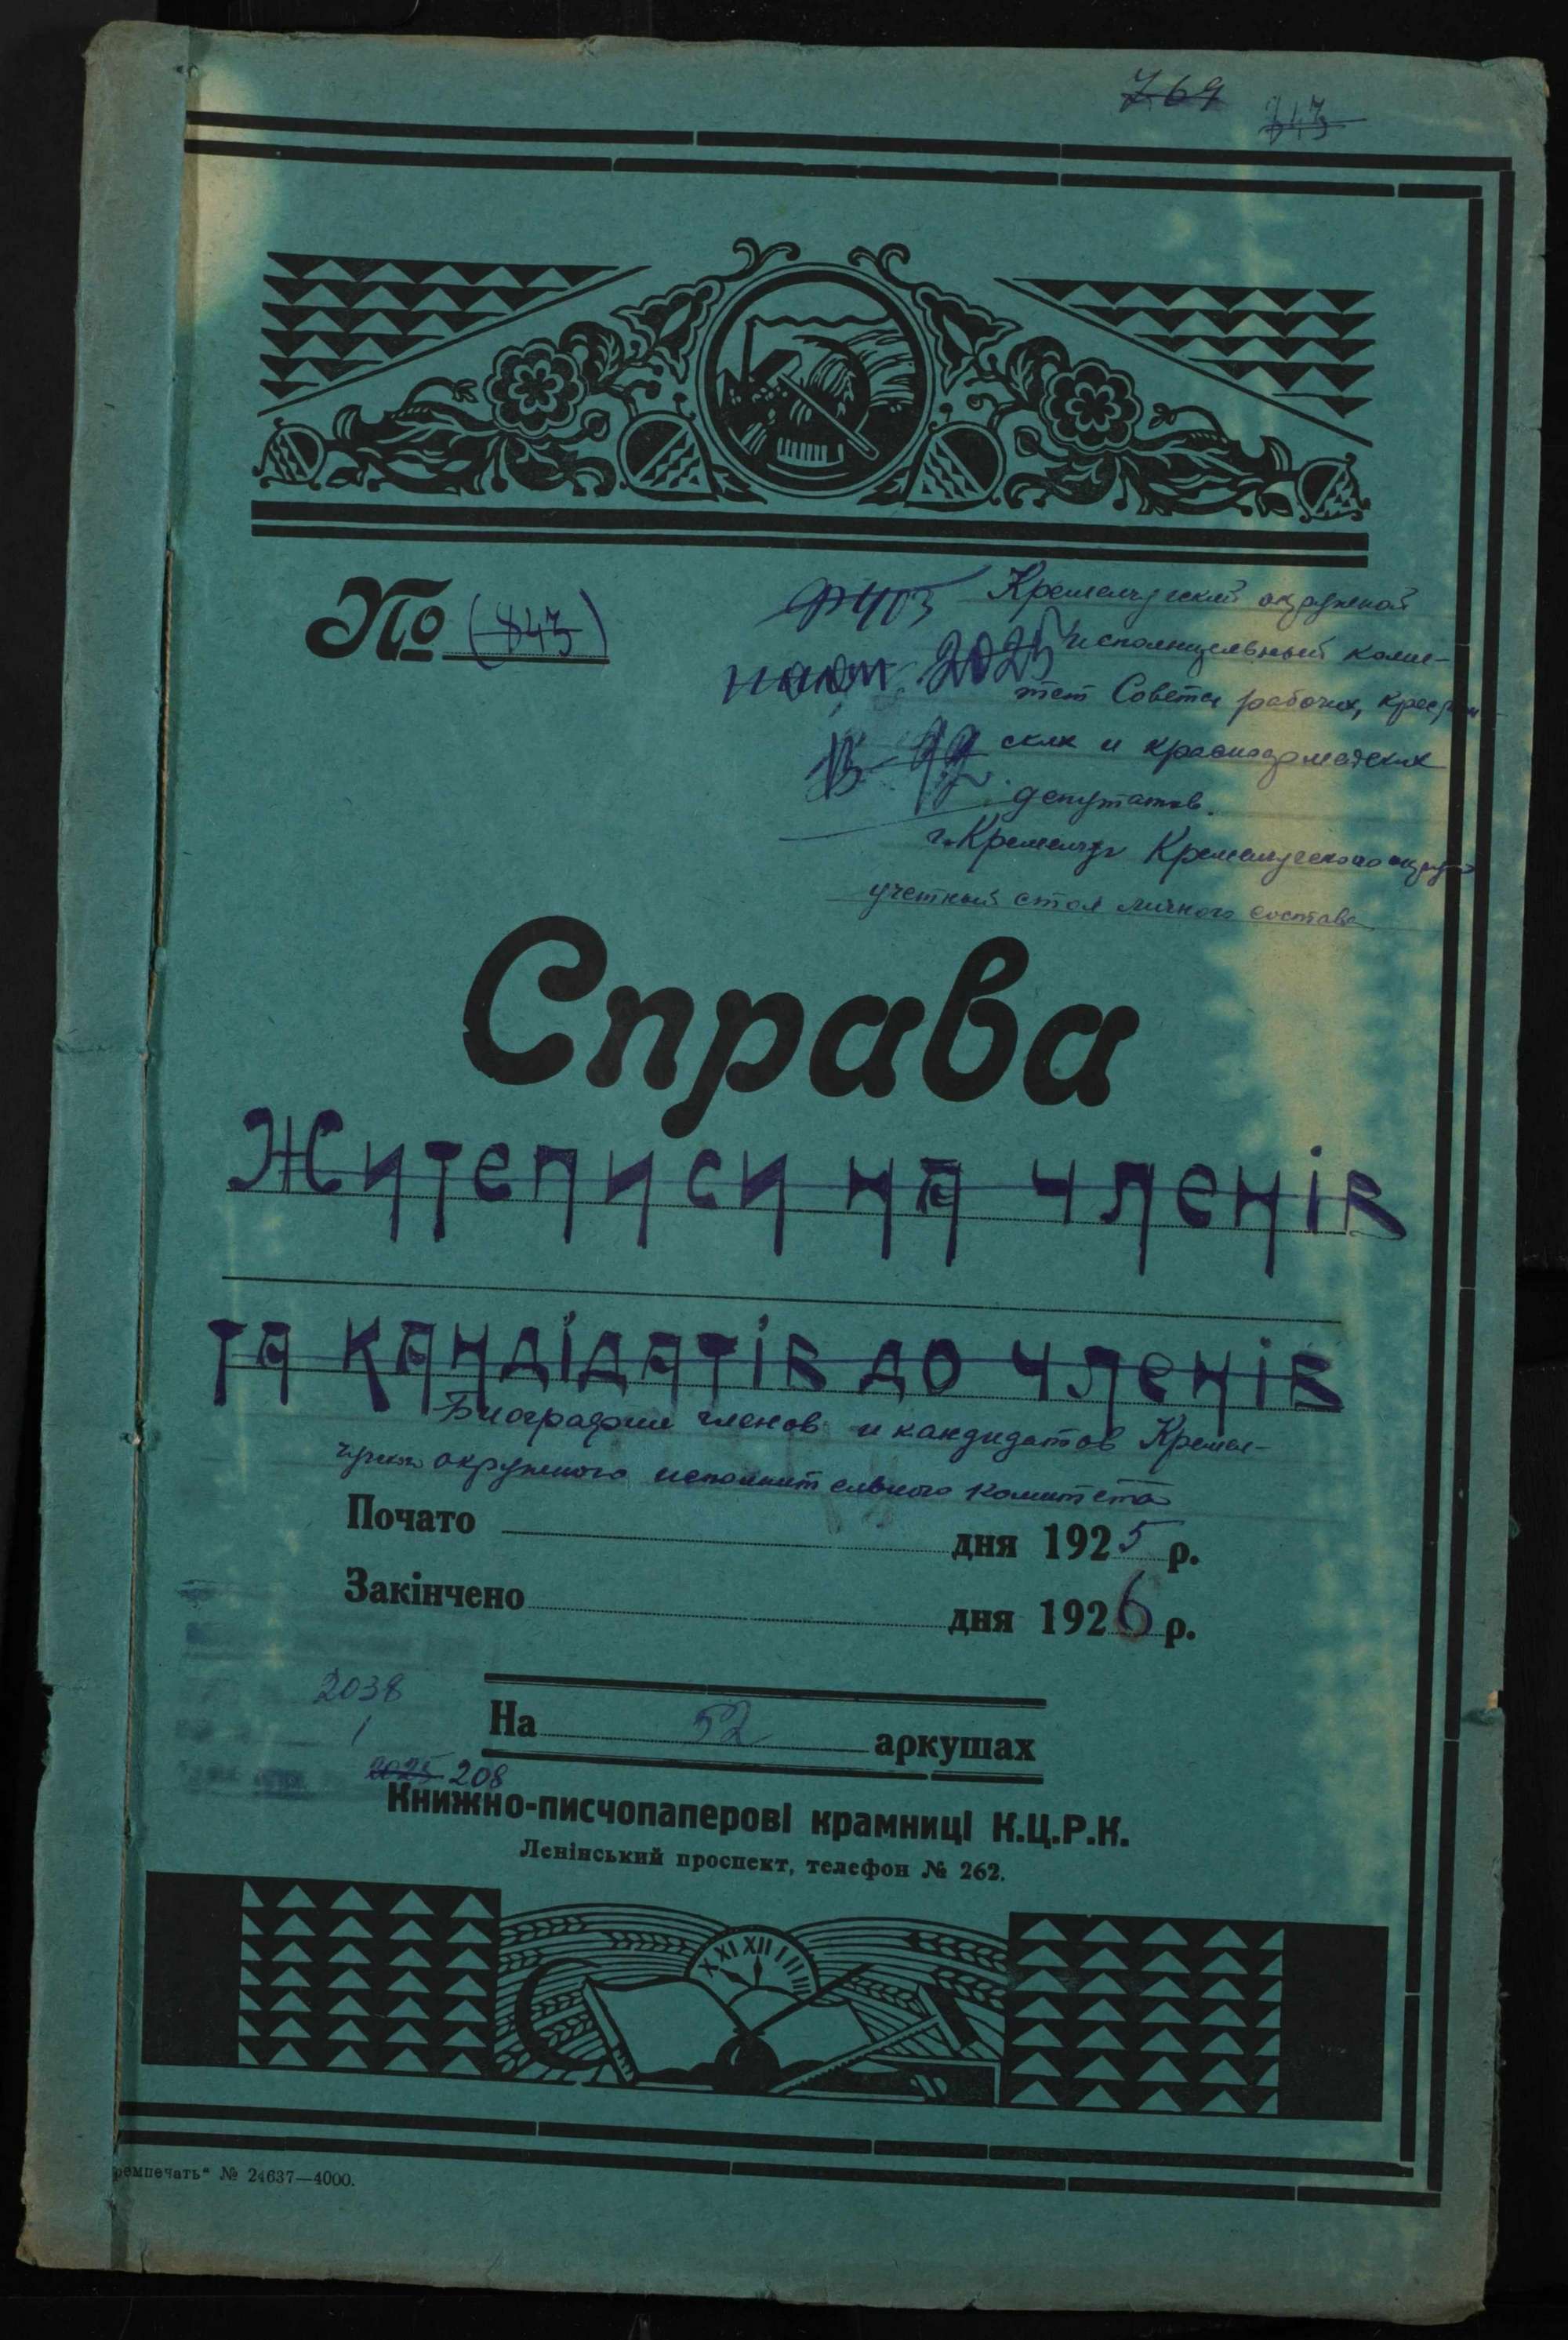 769 843
№ (843)
Кременчугский окружной
исполнительный коми-
тет Совета рабочих, крестьян-
ских и красноармейских
депутатов.
г. Кременчуг Кременчугского округа
учетный стол личного состава
Справа
Житеписи на членів
та кандідатів до членів
Биографии членов и кандидатов Кремен-
чугского окружного исполнительного комитета
Почато дня 1925 р.
Закінчено дня 1926 р.
2038
1
На 52 аркушах
2025 208
Книжно-писчопаперові крамниці К.Ц.Р.К.
Ленінський проспект, телефон № 262.
X XI XII I II III
ремпечать" № 24637—4000.